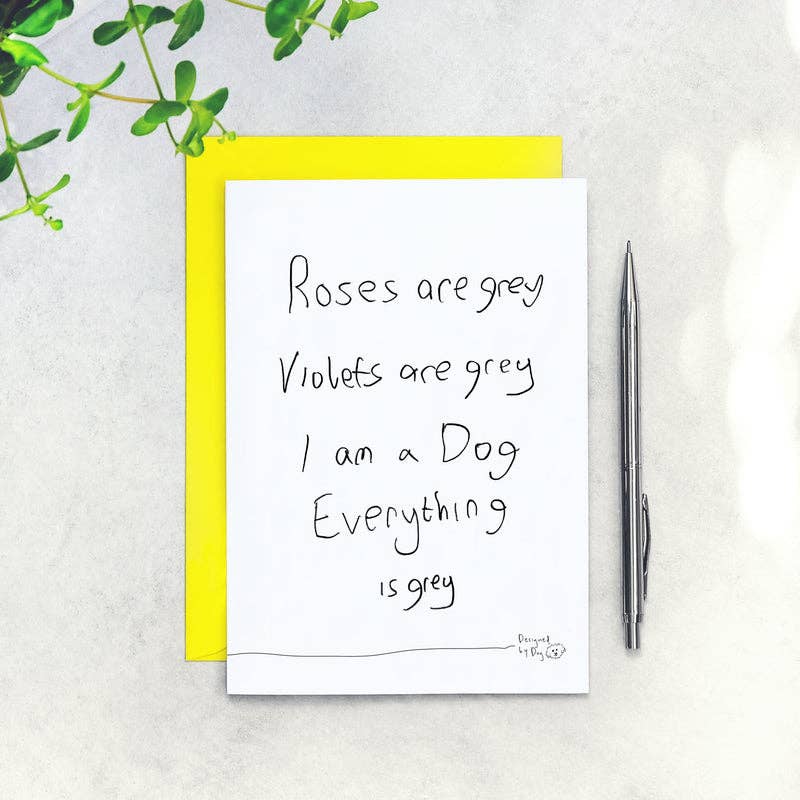 Roses are grey
Violets are grey
I am a Dog
Everything
is grey
Designed
by Dog